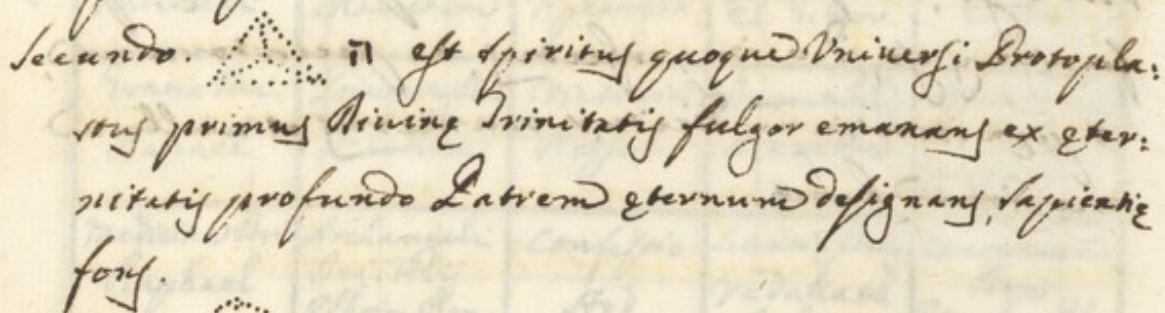 secundo. ח est spiritus quoque Universi Protopla:
stus primus Divinę Trinitatis fulgor emanans ex ęter:
nitatis profundo Patrem ęternum designans, sapientię
fons.